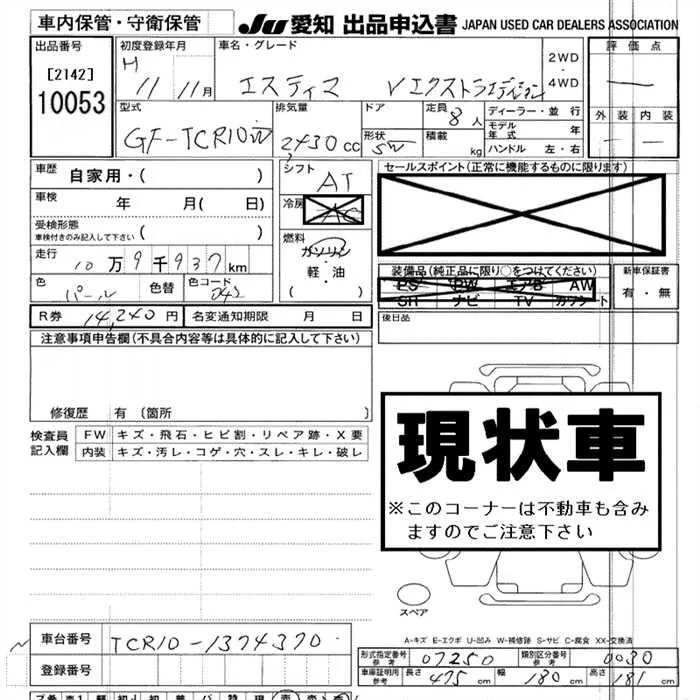 車内保管・守衛保管 JU 愛知 出品申込書 JAPAN USED CAR DEALERS ASSOCIATION
出品番号 初度登録年月 車名・グレード 2WD・4WD 評価点
[2142] H 11 11月 エスティマ Vエクストラエディション
10053 型式 排気量 ドア 定員 8人 ディーラー・並行 外装 内装
GF-TCR10W 2430cc 形状 SW 積載 kg モデル年式 年
ハンドル 左・右
車歴 自家用・( ) シフト AT セールスポイント(正常に機能するものに限ります)
車検 年 月( 日) 冷房
受検形態 ( )
車検付きのみ記入して下さい
燃料 ガソリン・軽・油 ( )
走行 10万9千937km
色 パール 色替 色コード 042
装備品(純正品に限り○をつけてください) 新車保証書
PS PW エアB AW 有・無
SH ナビ TV カワシート
R券 14,240円 名変通知期限 月 日 後日品
注意事項申告欄(不具合内容等は具体的に記入して下さい)
修復歴 有〔箇所 〕
検査員記入欄 FW キズ・飛石・ヒビ割・リペア跡・X要
内装 キズ・汚レ・コゲ・穴・スレ・キレ・破レ
現状車
※このコーナーは不動車も含み
ますのでご注意下さい
スペア
A-キズ E-エクボ U-凹み W-補修跡 S-サビ C-腐食 XX-交換済
車台番号 TCR10-1374370
登録番号
形式指定番号 参考 07250 類別区分番号 参考 0030
車庫証明用 参考 長さ 475cm 幅 180cm 高さ 181cm